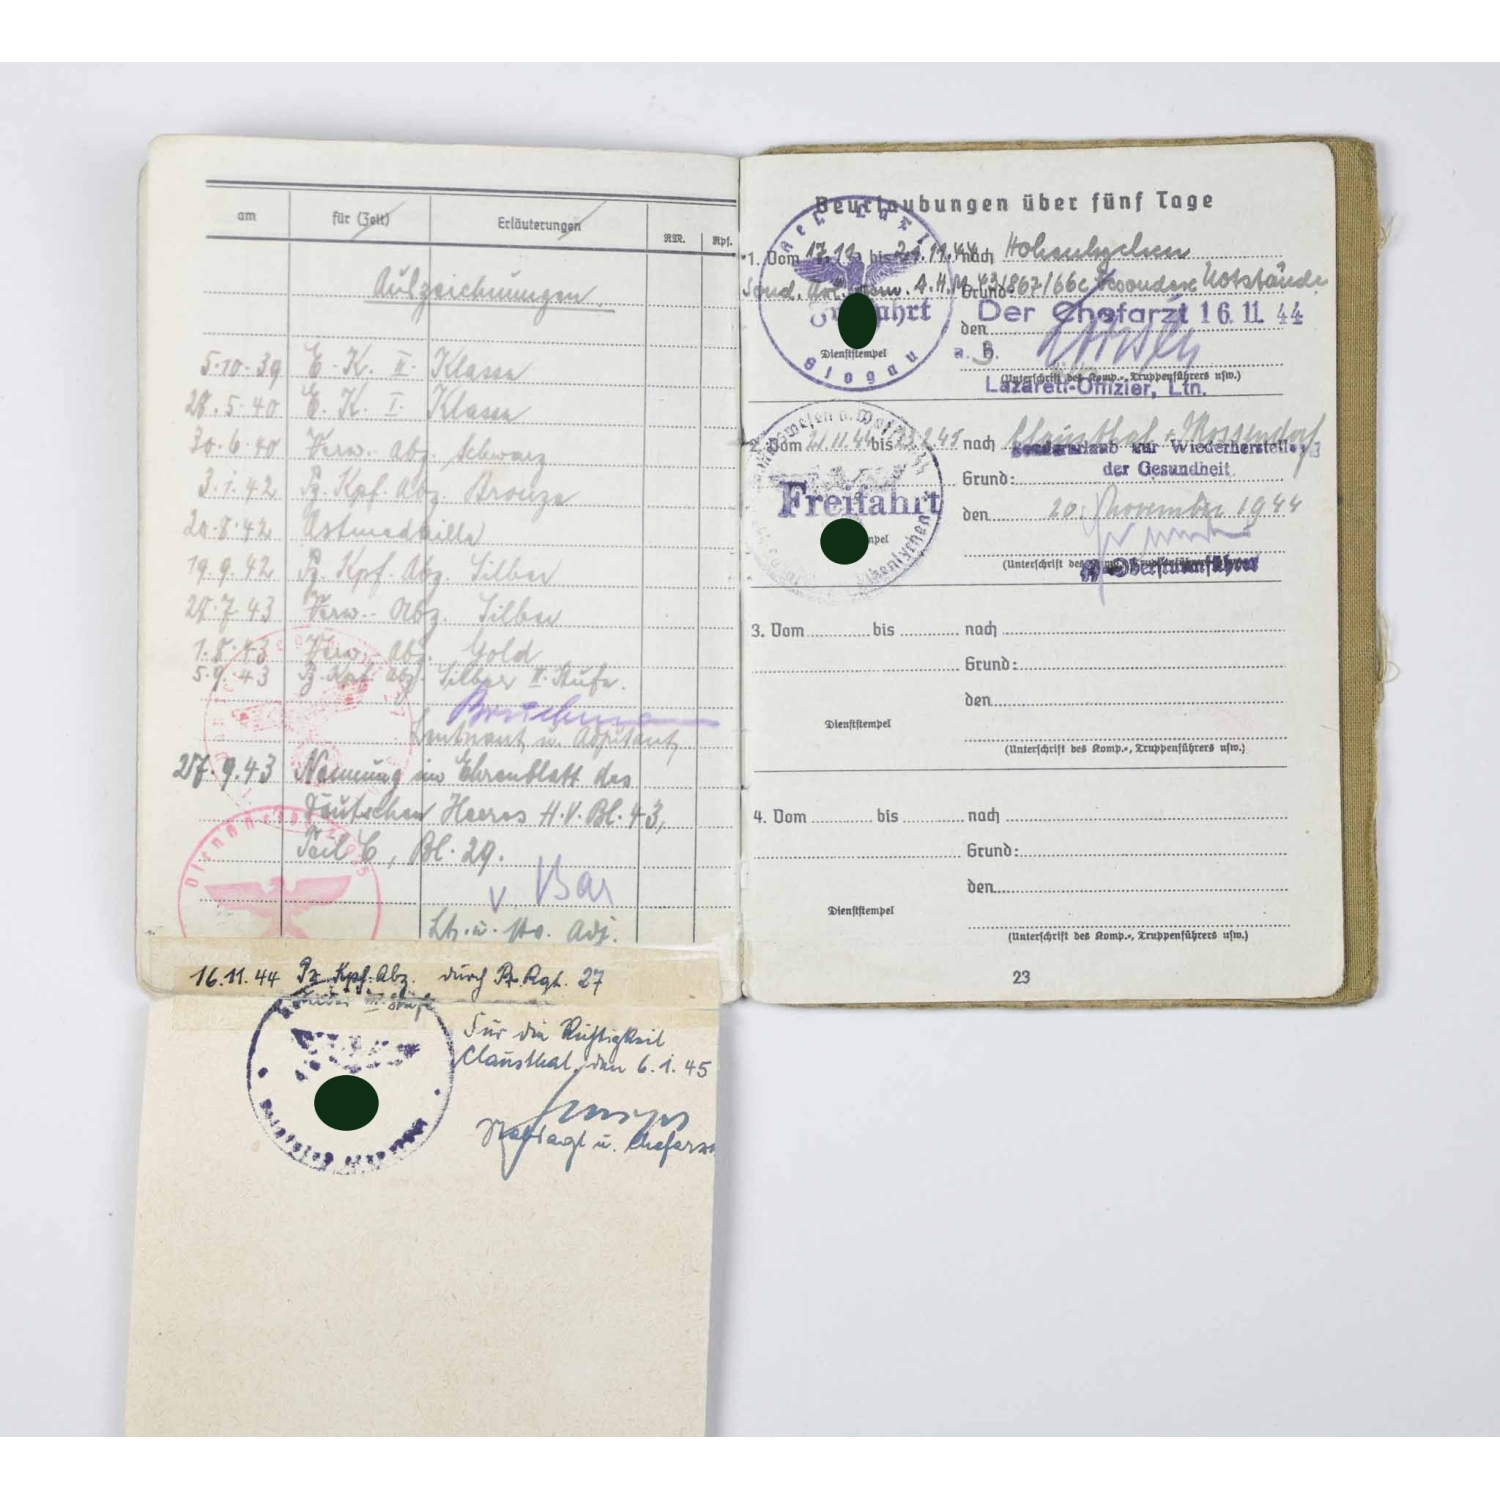 am für (Zeit) Erläuterungen RM. Rpf.
Aufzeichnungen.
5.10.39 E. K. II. Klasse
28.5.40 E. K. I. Klasse
30.6.40 Verw. Abz. Schwarz
3.1.42 Pz. Kpf. Abz. Bronze
20.8.42 Ostmedaille
19.9.42 Pz. Kpf. Abz. Silber
27.43 Verw. Abz. Silber
1.8.43 Verw. Abz. Gold
5.9.43 Pz. Kpf. Abz. Silber II. Stufe.
Leutnant u. Adjutant
27.9.43 Nennung im Ehrenblatt des
Deutschen Heeres H.V.Bl. 43,
Teil C, Bl. 29.
v Bar
Lt. u. Adj.
16.11.44 Pz. Kpf. Abz. durch Pz. Rgt. 27
III. Stufe
Für die Richtigkeit
Clausthal, den 6.1.45
Stabsarzt u. Chefarzt
Beurlaubungen über fünf Tage
1. Vom 17.11. bis 21.11.44 nach Hohenlychen
Grund: besondere Notstände
Freifahrt
Der Chefarzt 16.11.44
den
Dienststempel
(Unterschrift des Komp.-, Truppenführers usw.)
Lazarett-Offizier, Ltn.
2. Vom 21.11.44 bis 45 nach Clausthal
Sonderurlaub zur Wiederherstellung
der Gesundheit
Grund:
Freifahrt
den 20. November 1944
(Unterschrift des
3. Vom bis nach
Grund:
den
Dienststempel
(Unterschrift des Komp.-, Truppenführers usw.)
4. Vom bis nach
Grund:
den
Dienststempel
(Unterschrift des Komp.-, Truppenführers usw.)
23